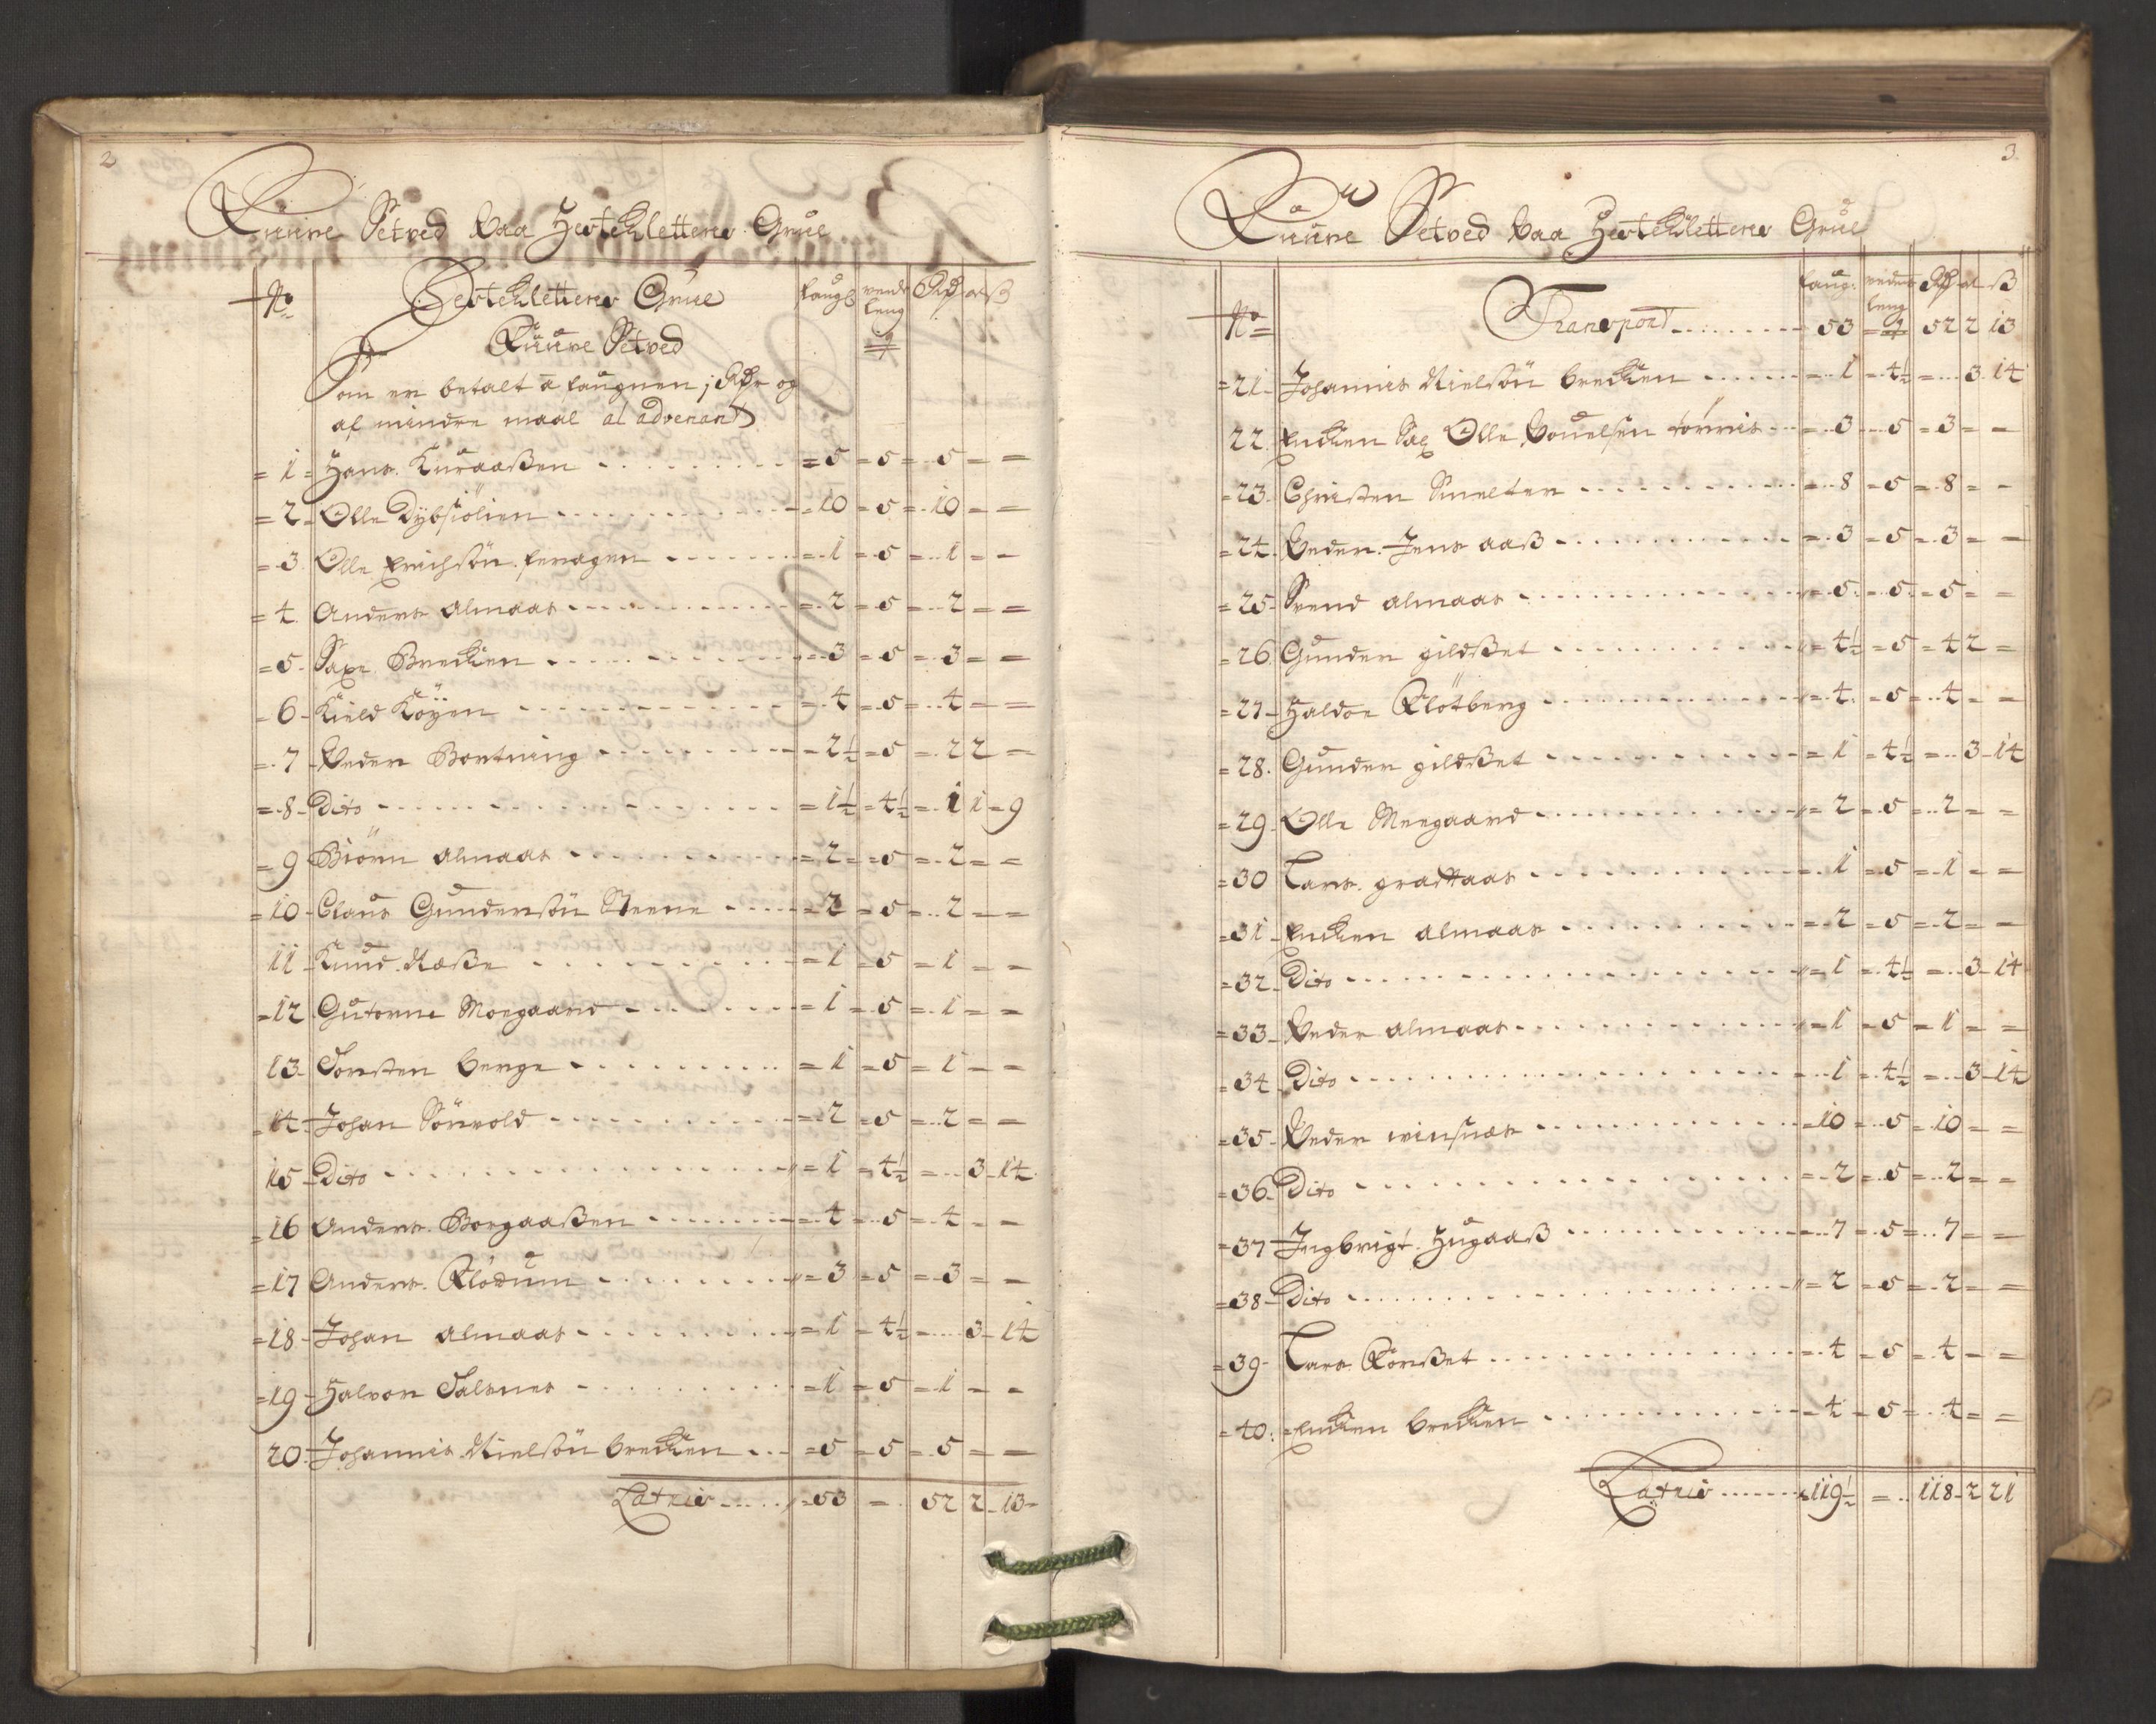 2
Ruüre Setved Paa Hestekletten Grue
No Hestekletten Grue faug: vede leng Rdr al ß
Ruüre Setved
Som er betalt a faugnen j Rdr og
af mindre maal al advenant
= 1 = Hans Kuraaßen = 5 = 5 = 5 = =
= 2 = Olle Dybsiölien = 10 = 5 = 10 = =
= 3 Olle Erichsön feragen = 1 = 5 = 1 = =
= 4 Anders Almaas = 2 = 5 = 2 = =
= 5 Saxe Brecken = 3 = 5 = 3 = =
= 6 Kield Köyen = 4 = 5 = 4 = =
= 7 Peder Bortning = 2½ = 5 = 2 2 =
= 8 Dito = 1½ = 4½ = 1 1 = 9
= 9 Biörn Almaas = 2 = 5 = 2 = =
= 10 Claus Gundersön Steene = 2 = 5 = 2 = =
11 Knud Næße = 1 = 5 = 1 = =
= 12 Gutorm Moegaard = 1 = 5 = 1 = =
13 Torsten berge = 1 = 5 = 1 = =
= 14 Johan Sörvold = 2 = 5 = 2 = =
15 Dito = 1 = 4½ = 3 14
= 16 Anders Borgaaßen = 4 = 5 = 4 = =
= 17 Anders Kløtum = 3 = 5 = 3 = =
= 18 Johan Almaas = 1 = 4½ = 3 14
= 19 Halvor Salsnes = 1 = 5 = 1 = =
20 Johannis Nielsön brecken = 5 = 5 = 5 = =
Latris = 53 = 52 2 13
3
Ruüre Setved Paa Hestekletten Grue
No Transport faug: veder leng Rdr al ß
53 = 52 2 13
= 21 Johannis Nielsön brecken = 1 = 4½ = 3 14
22 Encken Sal Olle Povelsen = 3 = 5 = 3 = =
= 23 Christen Smelter = 8 = 5 = 8 = =
= 24 Peder Jens aaß = 3 = 5 = 3 = =
= 25 Svend almaas = 5 = 5 = 5 = =
= 26 Gunder gildßet = 4½ = 5 = 4 2 =
= 27 Haldoe Kløtberg = 4 = 5 = 4 = =
= 28 Gunder gildßet = 1 = 4½ = 3 14
= 29 Olle Moegaard = 2 = 5 = 2 = =
= 30 Lars gradtaas = 1 = 5 = 1 = =
= 31 Encken almaas = 2 = 5 = 2 = =
= 32 Dito = 1 = 4½ = 3 14
= 33 Peder almaas = 1 = 5 = 1 = =
= 34 Dito = 1 = 4½ = 3 14
= 35 Peder winsnæs = 10 = 5 = 10 = =
= 36 Dito = 2 = 5 = 2 = =
= 37 Ingbrigt Hugaaß = 7 = 5 = 7 = =
= 38 Dito = 2 = 5 = 2 = =
= 39 Lars Rørßet = 4 = 5 = 4 = =
= 40 Encken brecken = 4 = 5 = 4 = =
Latris 119½ = 118 2 21